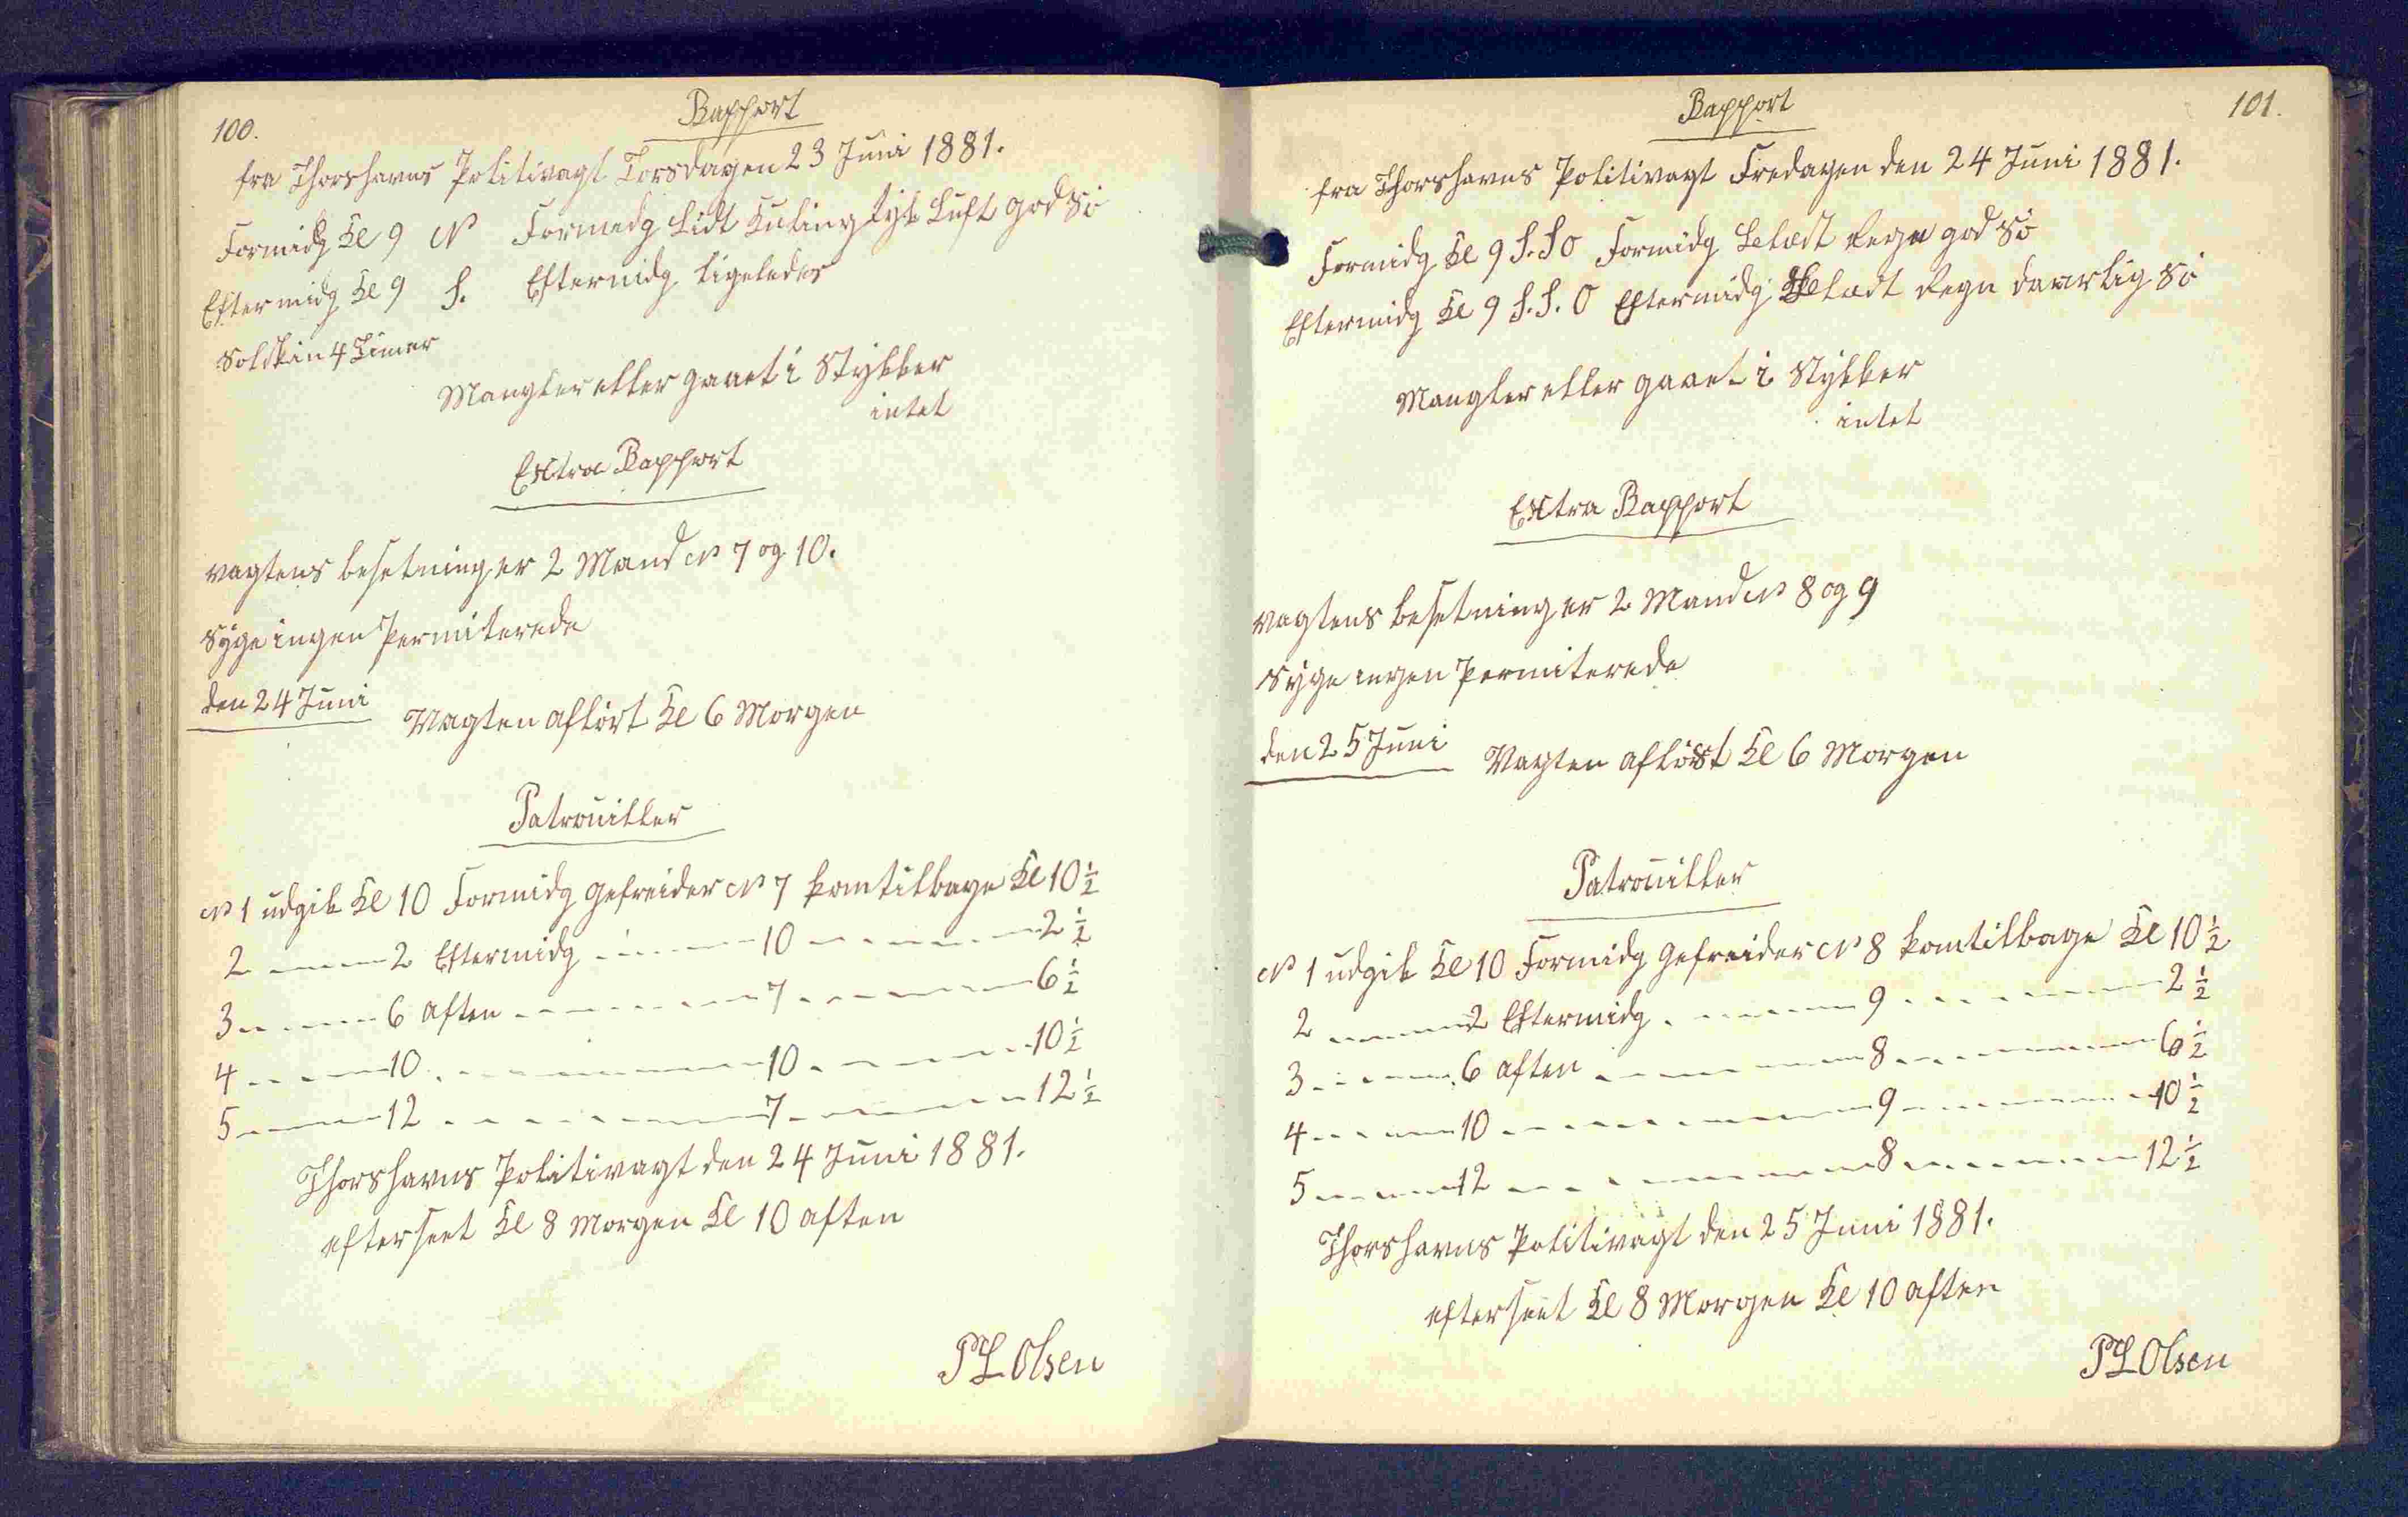 100.
Rapport
fra Thorshavns Politivagt Torsdagen 23 Juni 1881.
Formidg Kl 9 N Formidg Lidt Kuling tyk Luft god Sö
Eftermidg Kl 9 S. Eftermidg ligeledes
Solskin 4 Timer
Mangler eller gaaet i Stykker
intet
Extra Rapport
Vagtens besetning er 2 Mand No 7 og 10.
Syge ingen Permiterede
den 24 Juni
Vagten aflöst Kl 6 Morgen
Patrouiller
No 1 udgik Kl 10 Formidg Gefreider No 7 kom tilbage Kl 10 1/2
2 - - - 2 Eftermidg - - - 10 - - - 2 1/2
3 - - - 6 Aften - - - 7 - - - 6 1/2
4 - - - 10 - - - 10 - - - 10 1/2
5 - - - 12 - - - 7 - - - 12 1/2
Thorshavns Politivagt den 24 Juni 1881.
efterseet Kl 8 Morgen Kl 10 Aften
P L Olsen
101.
Rapport
fra Thorshavns Politivagt Fredagen den 24 Juni 1881.
Formidg Kl 9 S.SO Formidg Beladt Regn god Sö
Eftermidg Kl 9 S.S.O Eftermidg Beladt Regn daarlig Sö
Mangler eller gaaet i Stykker
intet
Extra Rapport
Vagtens besetning er 2 Mand No 8 og 9
Syge ingen Permiterede
den 25 Juni
Vagten aflöst Kl 6 Morgen
Patrouiller
No 1 udgik Kl 10 Formidg Gefreider No 8 kom tilbage Kl 10 1/2
2 - - - 2 Eftermidg - - - 9 - - - 2 1/2
3 - - - 6 Aften - - - 8 - - - 6 1/2
4 - - - 10 - - - 9 - - - 10 1/2
5 - - - 12 - - - 8 - - - 12 1/2
Thorshavns Politivagt den 25 Juni 1881.
efterseet Kl 8 Morgen Kl 10 Aften
P L Olsen